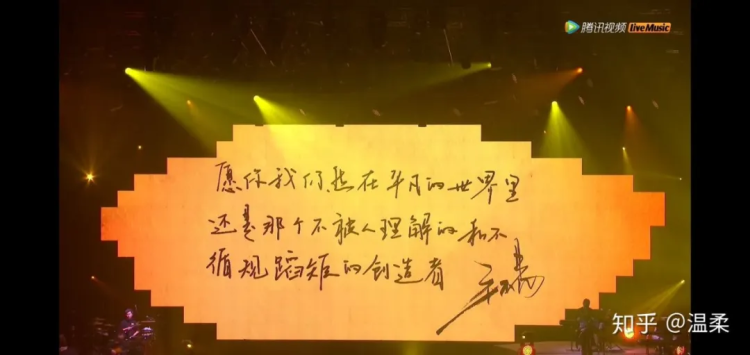 腾讯视频 Live Music
愿你我依然在平凡的世界里
还是那个不被人理解的和不
循规蹈矩的创造者
知乎 @温柔